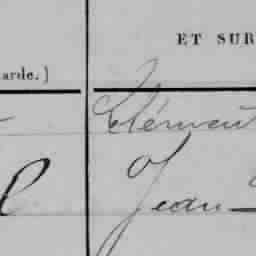 ET SUR
arde.)
Clément
Jean